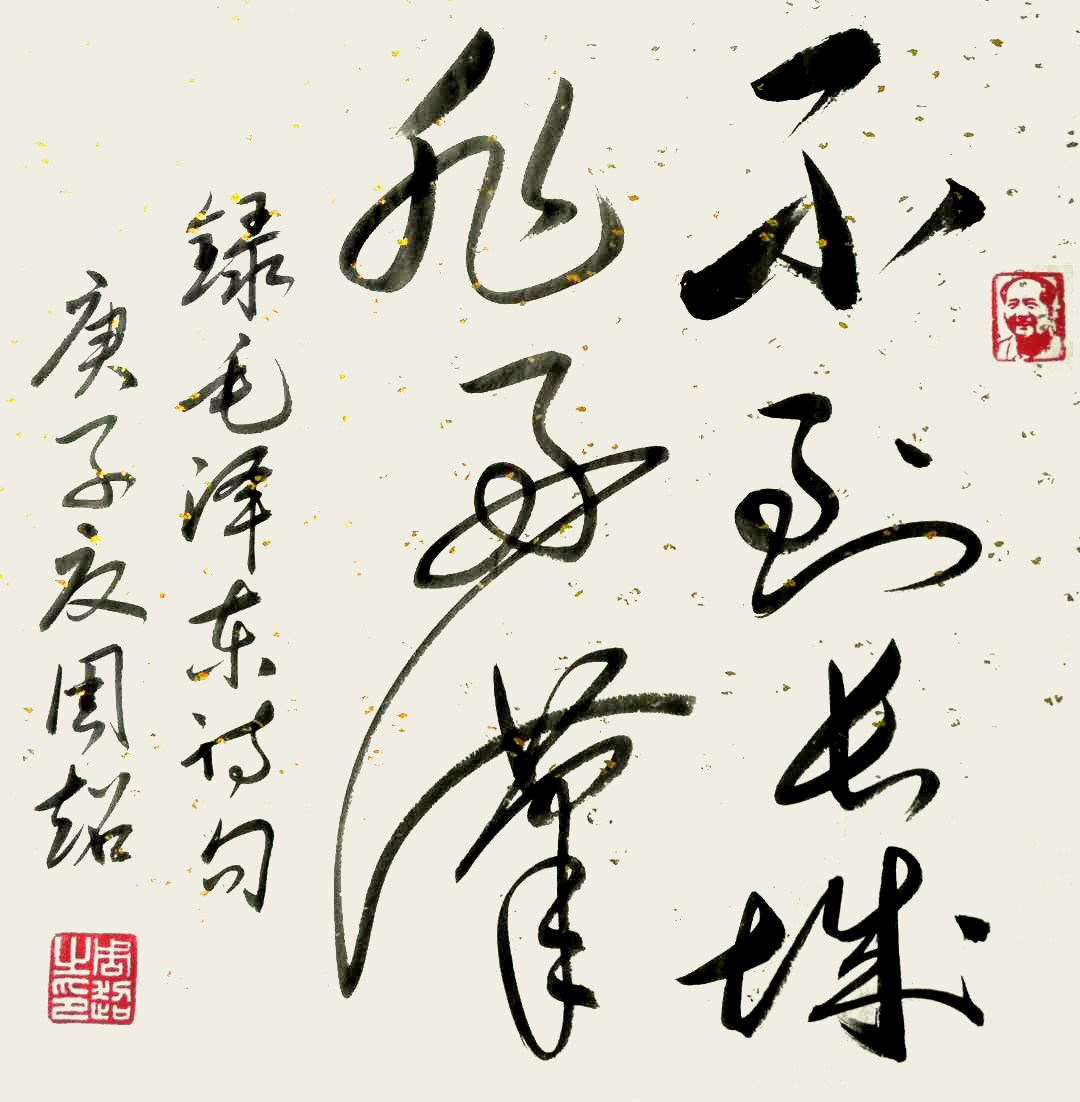 不到长城
非好漢
録毛泽东诗句
庚子夏周超
周超之印